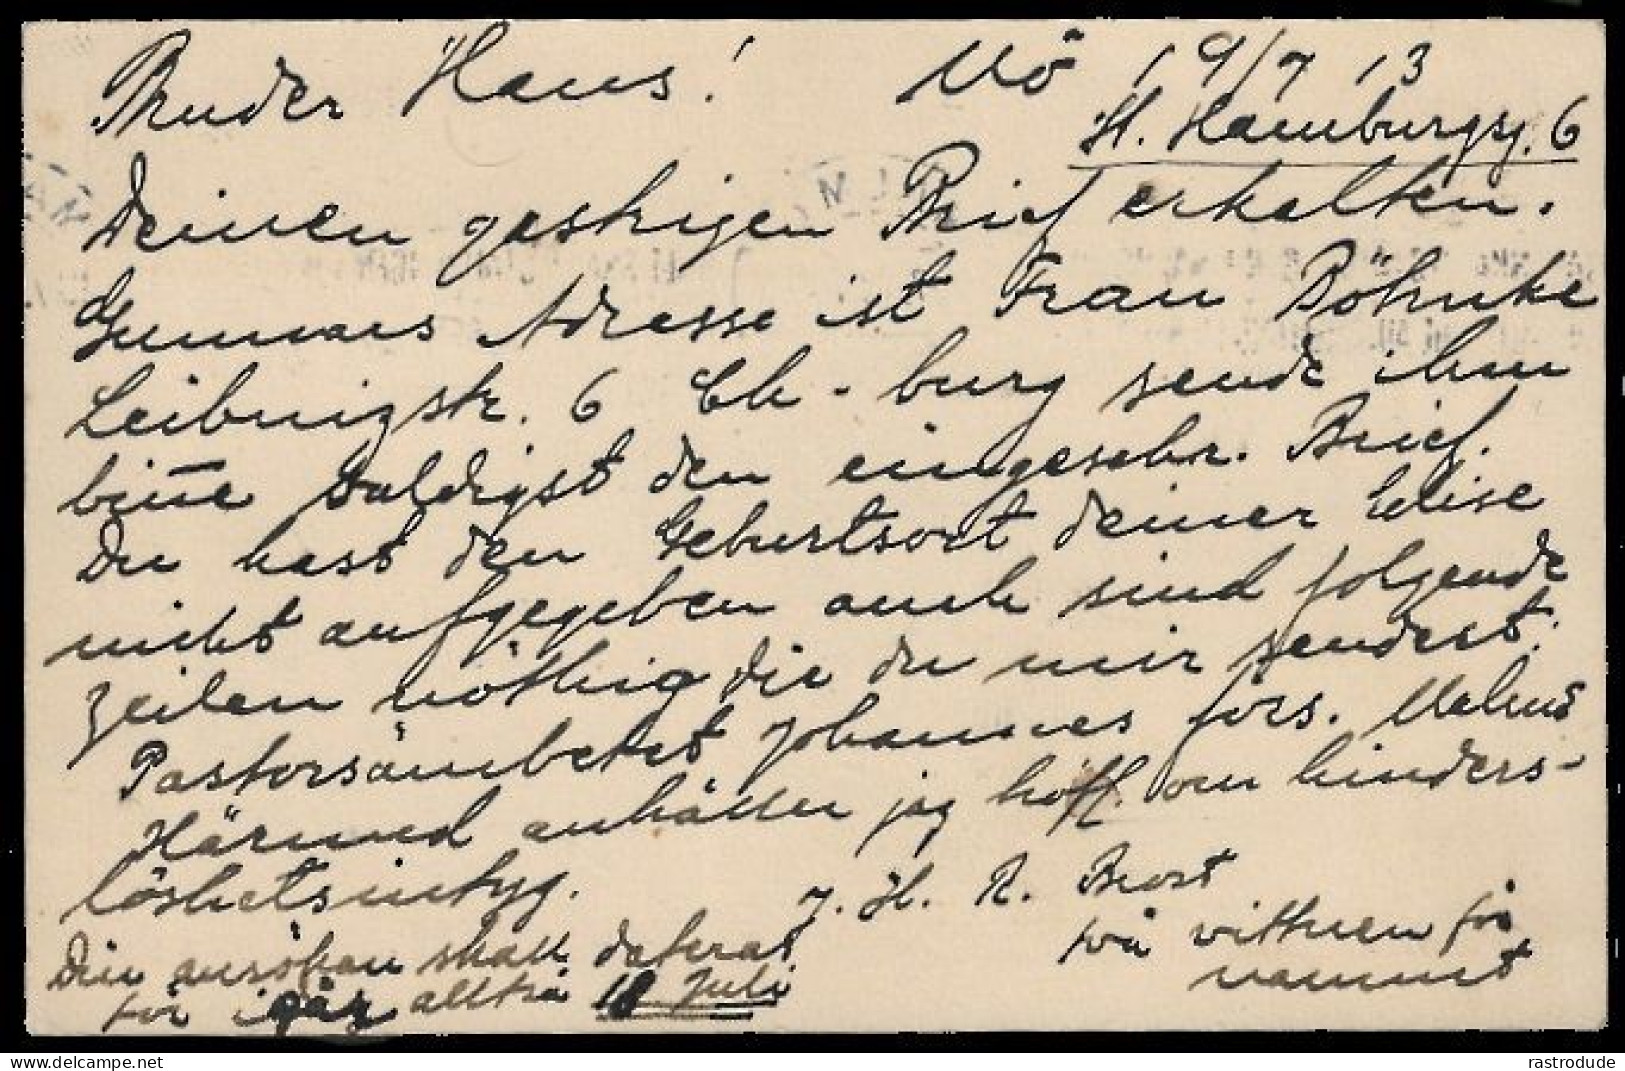 Bruder Hans! Mö 19/7 13
St. Hamburgsg. 6
Deinen gestrigen Brief erhalten.
Gunnars Adresse ist Frau Böhnke
Leibnizstr. 6 Ch-burg sende ihm
bitte baldigst den eingeschr. Brief.
Du hast den Geburtsort deiner Elise
nicht aufgegeben auch sind folgende
Zeilen nöthig die du mir sendest:
Pastorsämbetet Johannes förs. Malmö
Härmed anhåller jag höfl. om hinders-
löshetsintyg.
J. H. R. Brost
Din ansökan skall dateras
för igår alltså 18 Juli
två vittnen för
namnet
rastrodude